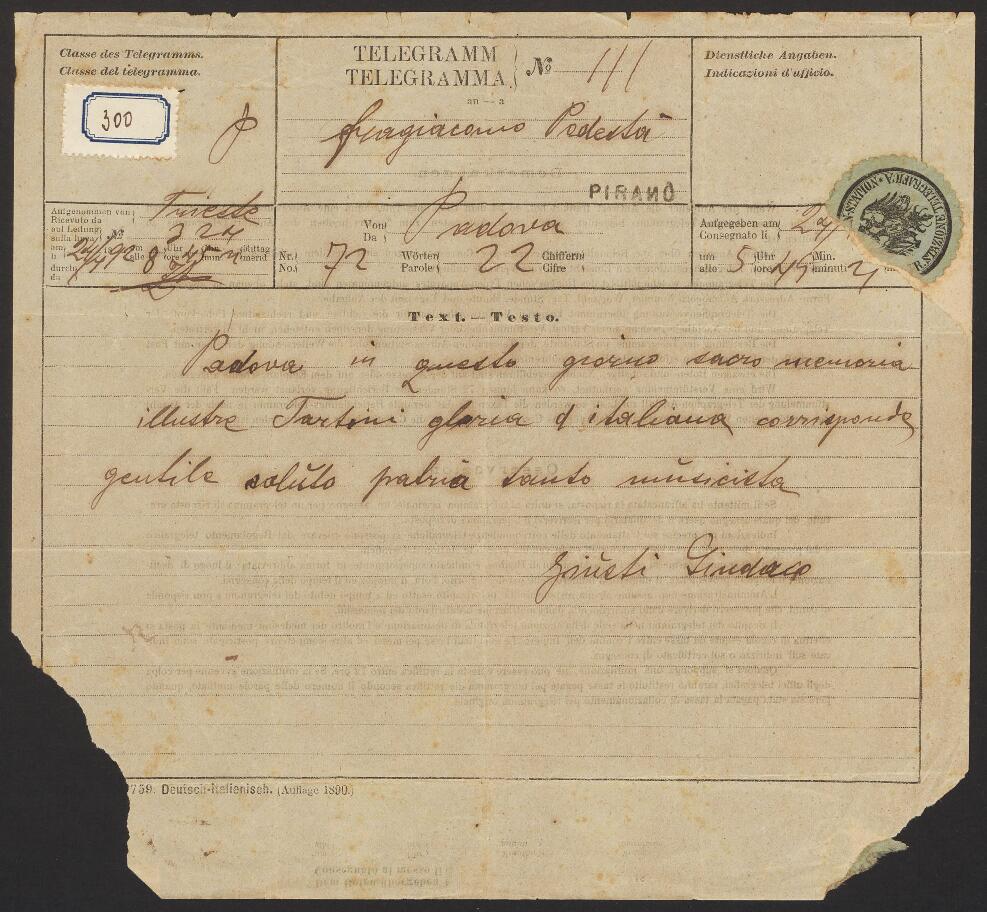 Classe des Telegramms.
Classe del telegramma.
300
TELEGRAMM
TELEGRAMMA
№ 111
an — a
fragiacomo Podestà
PIRANO
Dienstliche Angaben.
Indicazioni d'ufficio.
R. STAZIONE TELEGRAFICA
Aufgenommen von
Ricevuto da
auf Leitung
sulla linea
Trieste
№
92
um
alle 8
Uhr
ore
Min.
min.
durch
da
Von
Da
Padova
Nr.
No. 72
Wörter
Parole 22
Chiffern
Cifre
Aufgegeben am
Consegnato li 24/
um
alle 5
Uhr
ore 45
Min.
minuti
Text. — Testo.
Padova in questo giorno sacro memoria
illustre Tartini gloria d italiana corrisponde
gentile saluto patria tanto musicista
Giusti Sindaco
759. Deutsch-Italienisch. (Auflage 1890.)